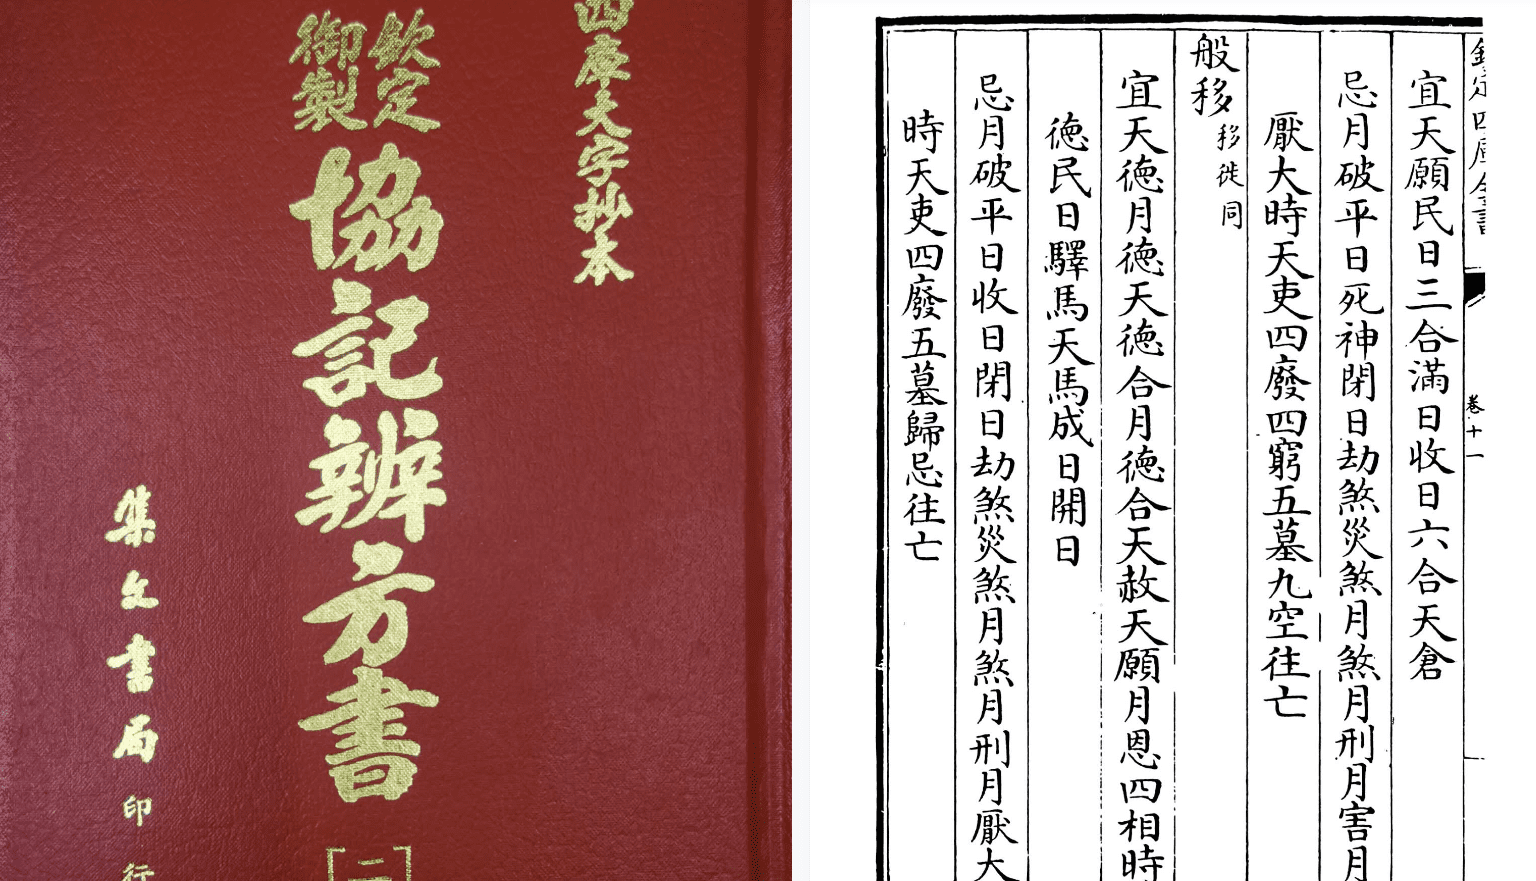 四庫大字抄本
欽定
御製
協記辨方書
[二]
集文書局印行
欽定四庫全書
卷十一
宜天願民日三合滿日收日六合天倉
忌月破平日死神閉日劫煞災煞月煞月刑月害月
厭大時天吏四廢四窮五墓九空往亡
般移 移徙同
宜天德月德天德合月德合天赦天願月恩四相時
德民日驛馬天馬成日開日
忌月破平日收日閉日劫煞災煞月煞月刑月厭大
時天吏四廢五墓歸忌往亡